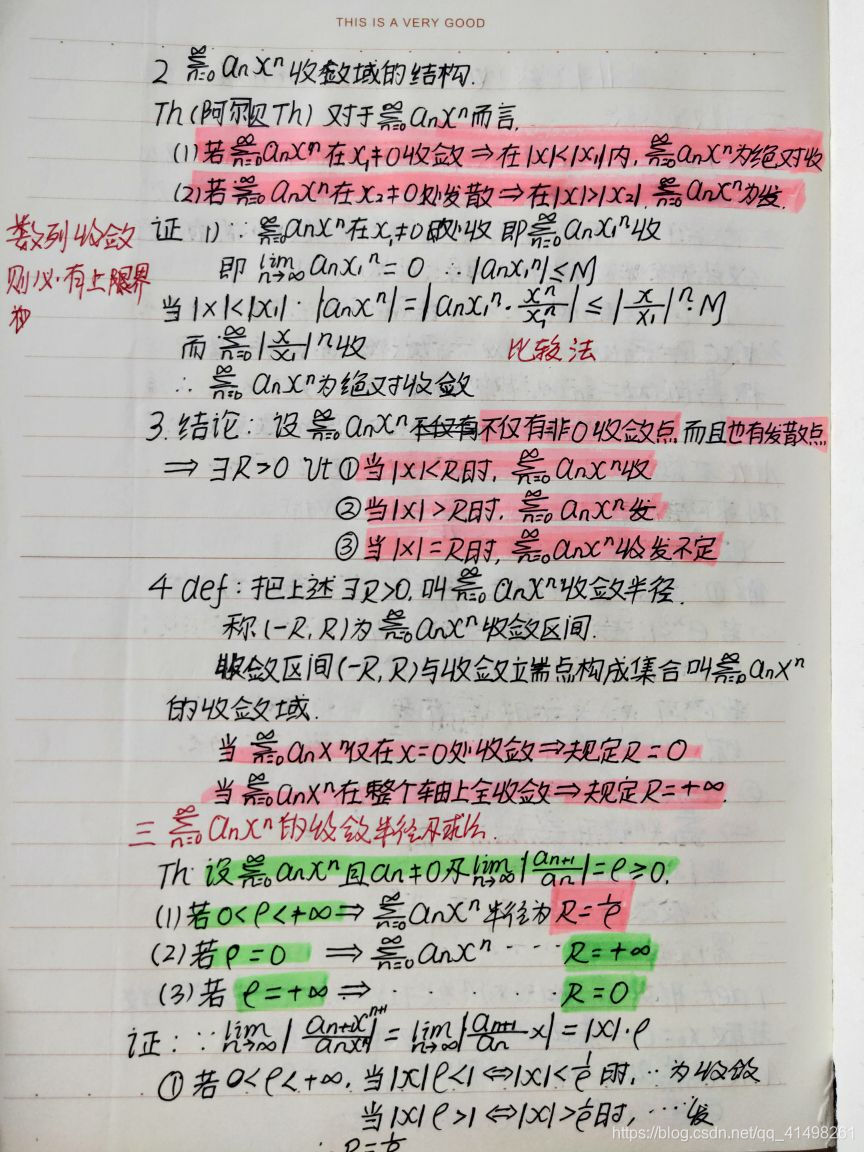 THIS IS A VERY GOOD
2 ∞∑n=0 anxⁿ 收敛域的结构.
Th(阿尔贝Th) 对于 ∞∑n=0 anxⁿ 而言,
(1) 若 ∞∑n=0 anxⁿ 在 x₁≠0 收敛 ⇒ 在 |x|<|x₁| 内, ∞∑n=0 anxⁿ 为绝对收
(2) 若 ∞∑n=0 anxⁿ 在 x₂≠0 处发散 ⇒ 在 |x|>|x₂|, ∞∑n=0 anxⁿ 为发.
数列收敛
则必有上限界
证 1) ∵ ∞∑n=0 anxⁿ 在 x₁≠0 处收 即 ∞∑n=0 anx₁ⁿ 收
即 lim n→∞ anx₁ⁿ = 0 ∴ |anx₁ⁿ| ≤ M
当 |x|<|x₁|. |anxⁿ| = |anx₁ⁿ · xⁿ/x₁ⁿ| ≤ |x/x₁|ⁿ · M
而 ∞∑n=0 |x/x₁|ⁿ 收 比较法
∴ ∞∑n=0 anxⁿ 为绝对收敛
3. 结论: 设 ∞∑n=0 anxⁿ 不仅有 不仅有非0收敛点, 而且也有发散点
⇒ ∃R>0 ① 当 |x|<R 时, ∞∑n=0 anxⁿ 收
② 当 |x|>R 时, ∞∑n=0 anxⁿ 发
③ 当 |x|=R 时, ∞∑n=0 anxⁿ 收发不定
4 def: 把上述 ∃R>0, 叫 ∞∑n=0 anxⁿ 收敛半径.
称 (-R, R) 为 ∞∑n=0 anxⁿ 收敛区间.
收敛区间 (-R, R) 与收敛立端点构成集合叫 ∞∑n=0 anxⁿ
的收敛域.
当 ∞∑n=0 anxⁿ 仅在 x=0 处收敛 ⇒ 规定 R=0
当 ∞∑n=0 anxⁿ 在整个轴上全收敛 ⇒ 规定 R=+∞.
三 ∞∑n=0 anxⁿ 的收敛半径及求法.
Th: 设 ∞∑n=0 anxⁿ 且 an≠0 及 lim n→∞ |an+1/an| = ρ ≥ 0.
(1) 若 0<ρ<+∞ ⇒ ∞∑n=0 anxⁿ 半径为 R=1/ρ
(2) 若 ρ=0 ⇒ ∞∑n=0 anxⁿ ···· R=+∞
(3) 若 ρ=+∞ ⇒ ····· R=0
证: ∵ lim n→∞ |an+1xⁿ⁺¹/anxⁿ| = lim n→∞ |an+1/an x| = |x|·ρ
① 若 0<ρ<+∞, 当 |x|ρ<1 ⇔ |x|<1/ρ 时, ·· 为收敛
当 |x|ρ>1 ⇔ |x|>1/ρ 时, ···· 发
∴ R=1/ρ
https://blog.csdn.net/qq_41498261